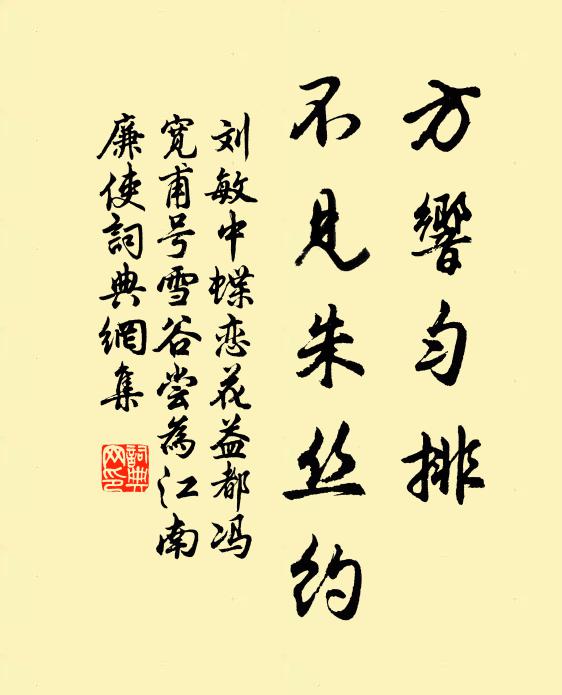 方響匀排
不見朱丝约
刘敏中蝶恋花益都冯
宽甫号雪谷尝為江南
廉使詞典網集
詞典
网印